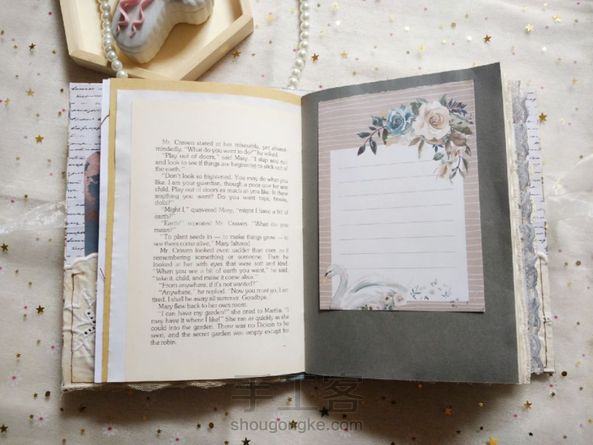 Mr. Craven stared at her miserably, yet absent-
mindedly. "What do you want to do?" he asked.
"Play out of doors," said Mary. "I skip and run
and look to see if things are beginning to stick out of
the earth."
"Don't look so frightened. You may do what you
like. I am your guardian, though a poor one for any
child. Play out of doors as much as you like. Is there
anything you want? Do you want toys, books,
dolls?"
"Might I," quavered Mary, "might I have a bit of
earth?"
"Earth!" repeated Mr. Craven. "What do you
mean?"
"To plant seeds in — to make things grow — to
see them come alive," Mary faltered.
Mr. Craven looked even sadder than ever as if
remembering something or someone. Then he
looked at her with eyes that were soft and kind.
"When you see a bit of earth you want," he said,
"take it, child, and make it come alive."
"From anywhere, if it's not wanted?"
"Anywhere," he replied. "Now you must go, I am
tired. I shall be away all summer. Goodbye."
Mary flew back to her own room.
"I can have my garden!" she cried to Martha. "I
may have it where I like!" She ran as quickly as she
could into the garden. There was no Dickon to be
seen, and the secret garden was empty except for
the robin.
手工客
shougongke.com